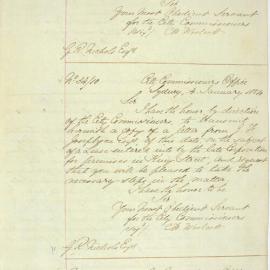 Sir
Your Most Obedient Servant
for the City Commissioners
C. H. Woolcott
G. R. Nichols Esqre
No 54/10 City Commissioners Office
Sydney, 4 January 1854
Sir
I have the honor by direction
of the City Commissioners to transmit
herewith a copy of a letter from J. G.
Esqre of this date on the subject
of a Lease entered into by the late Corporation
for premises in King Street, and request
that you will be pleased to take the
necessary steps in the matter
I have the honor to be
Sir
Your Most Obedient Servant
for the City Commissioners
C. H. Woolcott
G. R. Nichols Esqre